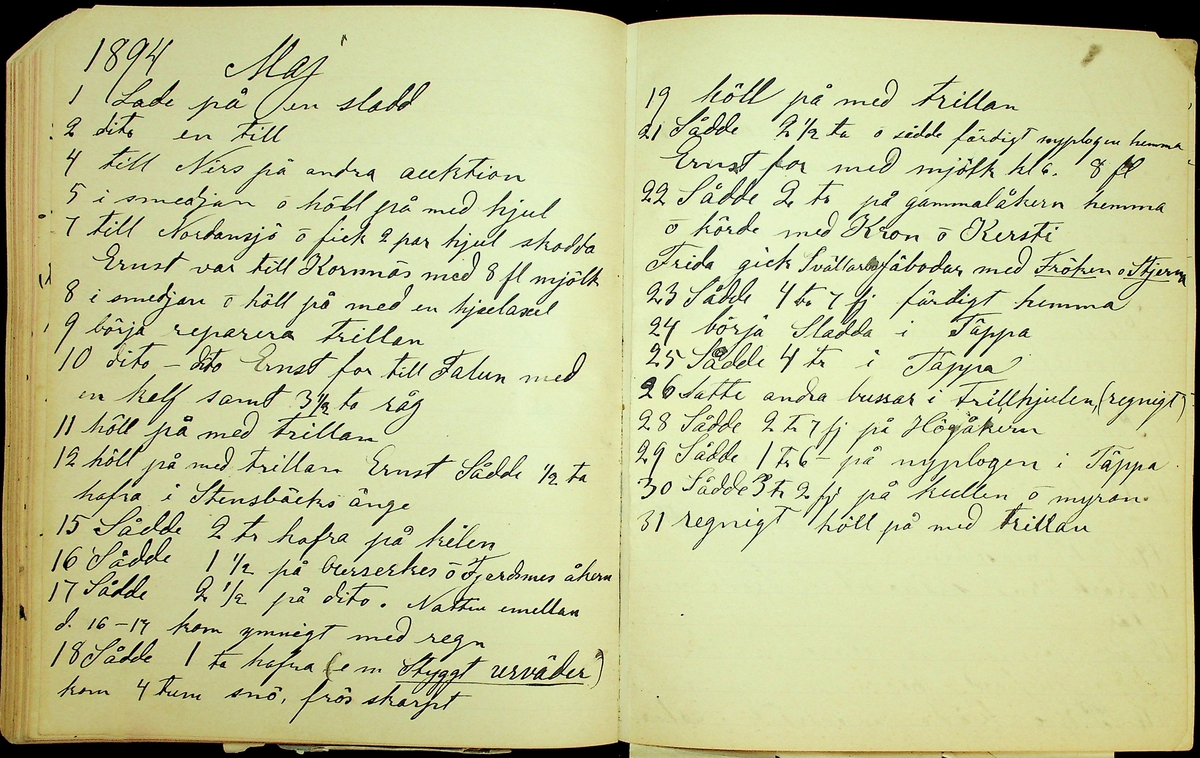 1894 Maj
1 Lade på en sladd
2 dito en till
4 till Nirs på andra auktion
5 i smedjan o höll på med hjul
7 till Nordansjö o fick 2 par hjul skodda
Ernst var till Kornnäs med 8 fl mjölk
8 i smedjan o höll på med en hjulaxel
9 börja reparera trillan
10 dito – dito Ernst for till Falun med
en kalf samt 3½ to råg
11 höll på med trillan
12 höll på med trillan Ernst Sådde ½ to
hafra i Stensbäcks änge
15 Sådde 2 tr hafra på kilen
16 Sådde 1 ½ på o åkern
17 Sådde 2 ½ på dito. Natten emellan
d. 16–17 kom ymnigt med regn
18 Sådde 1 to hafra (e m Styggt urväder)
kom 4 tum snö, frös skarpt
19 höll på med trillan
21 Sådde 2 ½ to o sådde färdigt nyplogen hemma
Ernst for med mjölk kl 6. 8 fl
22 Sådde 2 tr på gammalåkern hemma
o körde med Kron o Kersti
Frida gick fäbodar med Fröken o Stjerna
23 Sådde 4 tr 7 fj färdigt hemma
24 börja Sladda i Täppa
25 Sådde 4 tr i Täppa
26 Satte andra bussar i trillhjulen, (regnigt)
28 Sådde 2 tr 7 fj på Högåkern
29 Sådde 1 tr 6 – på nyplogen i Täppa.
30 Sådde 3 tr 2 fj på kullen o myran.
31 regnigt höll på med trillan